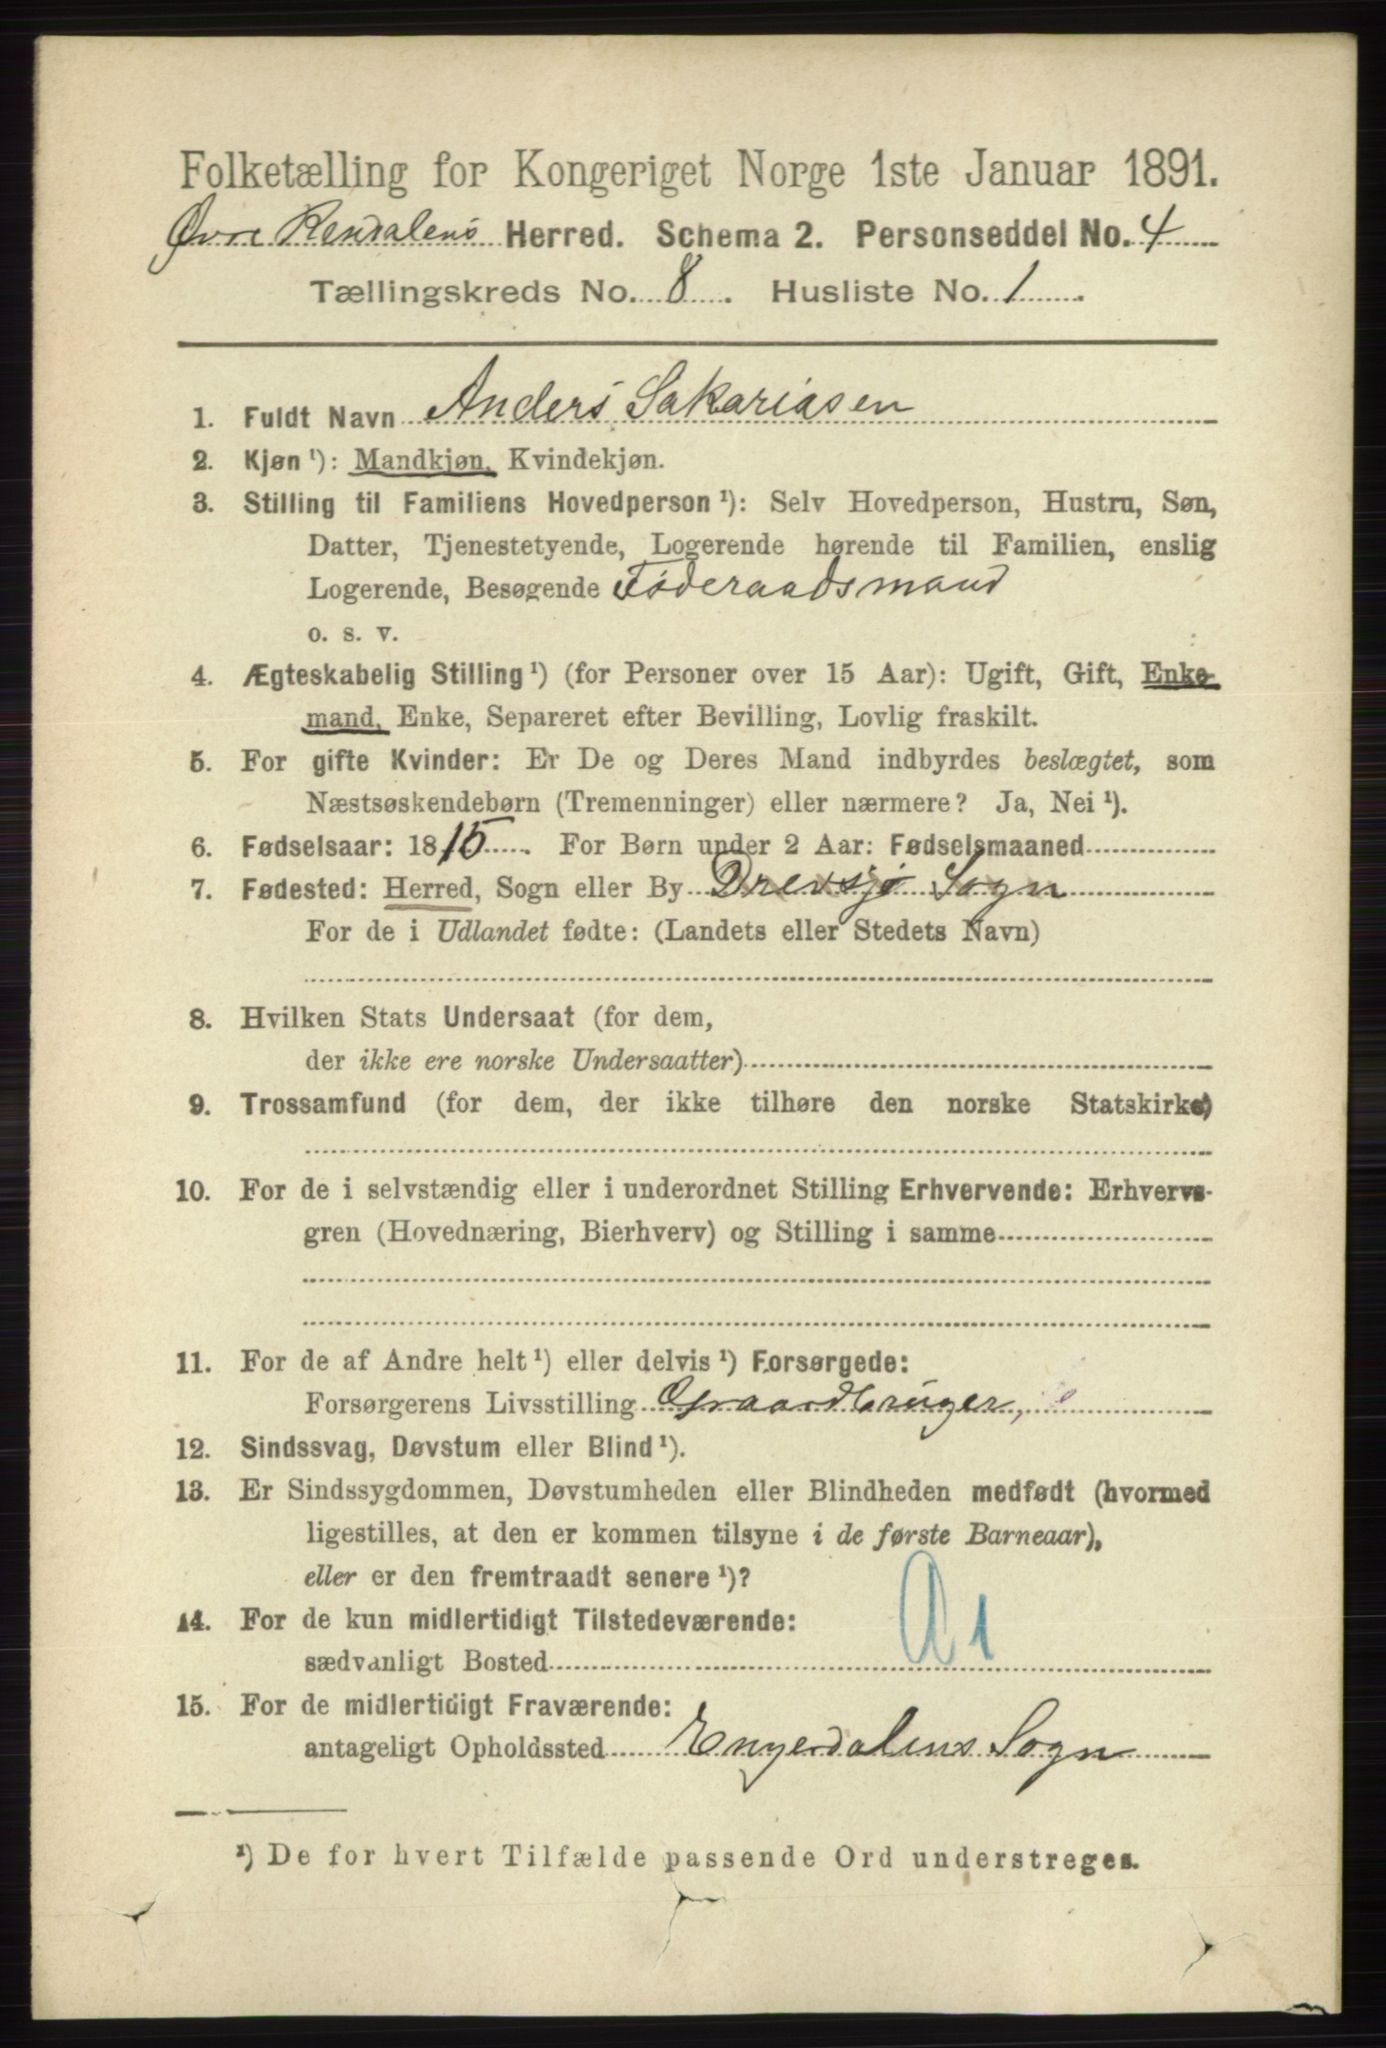 Folketælling for Kongeriget Norge 1ste Januar 1891.
Øvre Rendalens Herred. Schema 2. Personseddel No. 4
Tællingskreds No. 8. Husliste No. 1.
1. Fuldt Navn Anders Sakariasen
2. Kjøn ¹): Mandkjøn, Kvindekjøn.
3. Stilling til Familiens Hovedperson ¹): Selv Hovedperson, Hustru, Søn,
Datter, Tjenestetyende, Logerende hørende til Familien, enslig
Logerende, Besøgende Føderaadsmand
o. s. v.
4. Ægteskabelig Stilling ¹) (for Personer over 15 Aar): Ugift, Gift, Enke-
mand, Enke, Separeret efter Bevilling, Lovlig fraskilt.
5. For gifte Kvinder: Er De og Deres Mand indbyrdes beslægtet, som
Næstsøskendebørn (Tremenninger) eller nærmere? Ja, Nei ¹).
6. Fødselsaar: 1815. For Børn under 2 Aar: Fødselsmaaned
7. Fødested: Herred, Sogn eller By Drevsjø Sogn
For de i Udlandet fødte: (Landets eller Stedets Navn)
8. Hvilken Stats Undersaat (for dem,
der ikke ere norske Undersaatter)
9. Trossamfund (for dem, der ikke tilhøre den norske Statskirke)
10. For de i selvstændig eller i underordnet Stilling Erhvervende: Erhvervs-
gren (Hovednæring, Bierhverv) og Stilling i samme
11. For de af Andre helt ¹) eller delvis ¹) Forsørgede:
Forsørgerens Livsstilling Graardbruger,
12. Sindssvag, Døvstum eller Blind ¹).
13. Er Sindssygdommen, Døvstumheden eller Blindheden medfødt (hvormed
ligestilles, at den er kommen tilsyne i de første Barneaar),
eller er den fremtraadt senere ¹)?
14. For de kun midlertidigt Tilstedeværende:
sædvanligt Bosted
A 1
15. For de midlertidigt Fraværende:
antageligt Opholdssted Engerdalens Sogn
¹) De for hvert Tilfælde passende Ord understreges.